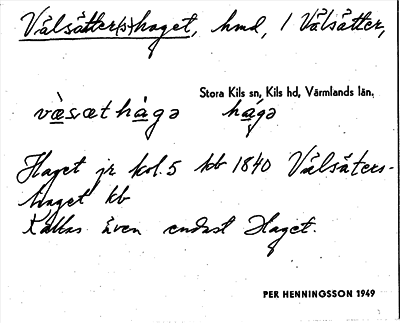 Välsätter(s)haget, hmd, 1 Välsätter,
Stora Kils sn, Kils hd, Värmlands län.
væ̀sæthàgə hágə
Haget jr kol. 5 kb 1840 Välsäters-
haget kb
Kallas även endast Haget.
PER HENNINGSSON 1949